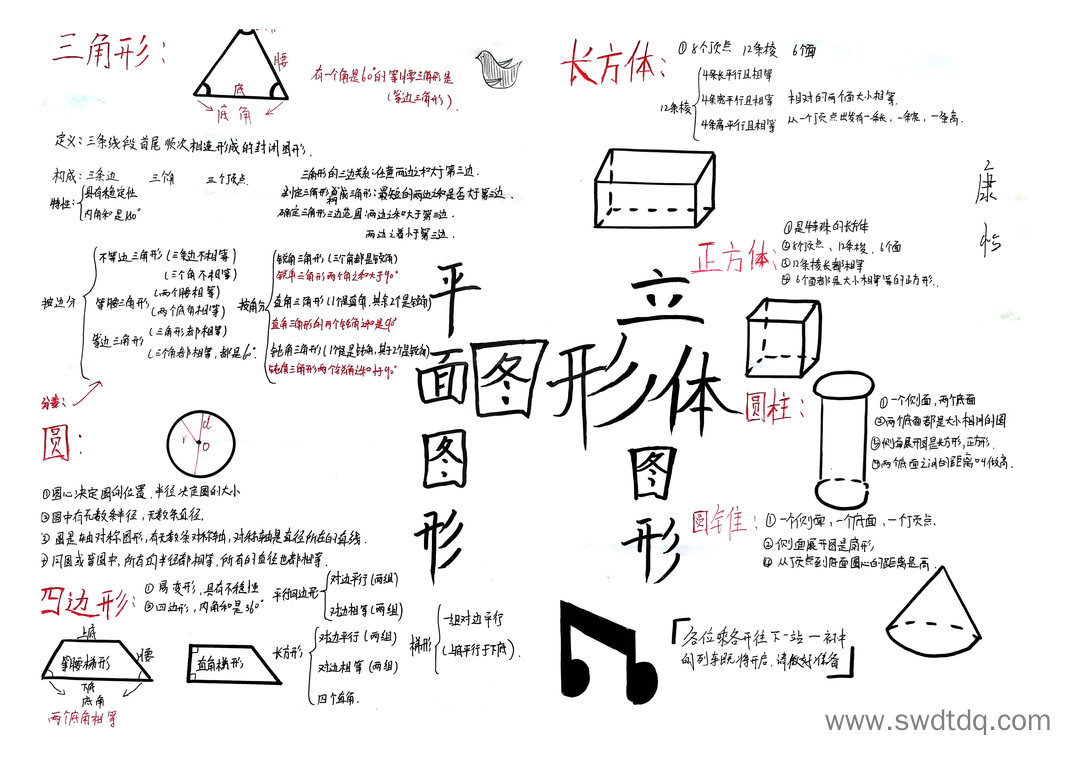 三角形：
腰
底
底角
有一个角是60°的等腰三角形是
（等边三角形）.
定义：三条线段首尾顺次相连形成的封闭图形.
构成：三条边 三个角 三个顶点.
特性：
具有稳定性
内角和是180°
三角形的三边关系：任意两边之和大于第三边.
判定三角形构成三角形：最短的两边之和是否大于第三边.
确定三角形三边范围：两边之和大于第三边.
两边之差小于第三边.
按边分
不等边三角形（三条边不相等）
（三个角不相等）
等腰三角形（两个腰相等）
（两个底角相等）
等边三角形（三角形都相等）
（三个角都相等，都是60°.
按角分
锐角三角形（三个角都是锐角）
锐角三角形两个角之和大于90°
直角三角形（1个是直角，其余2个是锐角）
直角三角形的两个锐角之和是90°
钝角三角形（1个是钝角，其于2个是锐角）
钝角三角形两个锐角之和小于90°
分类：
圆：
d
r
O
①圆心决定圆的位置，半径决定圆的大小
②圆中有无数条半径，无数条直径.
③圆是轴对称图形，有无数条对称轴，对称轴是直径所在的直线.
④同圆或等圆中，所有的半径都相等，所有的直径也都相等.
四边形：
①易变形，具有不稳性
②四边形，内角和是360°
上底
等腰梯形
腰
下底
底角
两个底角相等
直角梯形
平行四边形
对边平行（两组）
对边相等（两组）
长方形
对边平行（两组）
对边相等（两组）
四个直角.
梯形
一组对边平行
（上底平行于下底）.
平面图形
图形
立体图形
长方体：
①8个顶点 12条棱 6个面
12条棱
4条长平行且相等
4条宽平行且相等
4条高平行且相等
相对的两个面大小相等.
从一个顶点出发有一条长，一条宽，一条高.
康
正方体：
①是特殊的长方体
②8个顶点、12条棱、6个面
③12条棱长都相等
④6个面都是大小相等的正方形.
圆柱：
①一个侧面，两个底面
②两个底面都是大小相同的圆
③侧面展开图是长方形，正方形.
④两个底面之间的距离叫做高.
圆锥：
①一个侧面，一个底面，一个顶点.
②侧面展开图是扇形
④从顶点到底面圆心的距离是高.
「各位乘客开往下一站一初中
的列车既将开启，请做好准备」
www.swdtdq.com